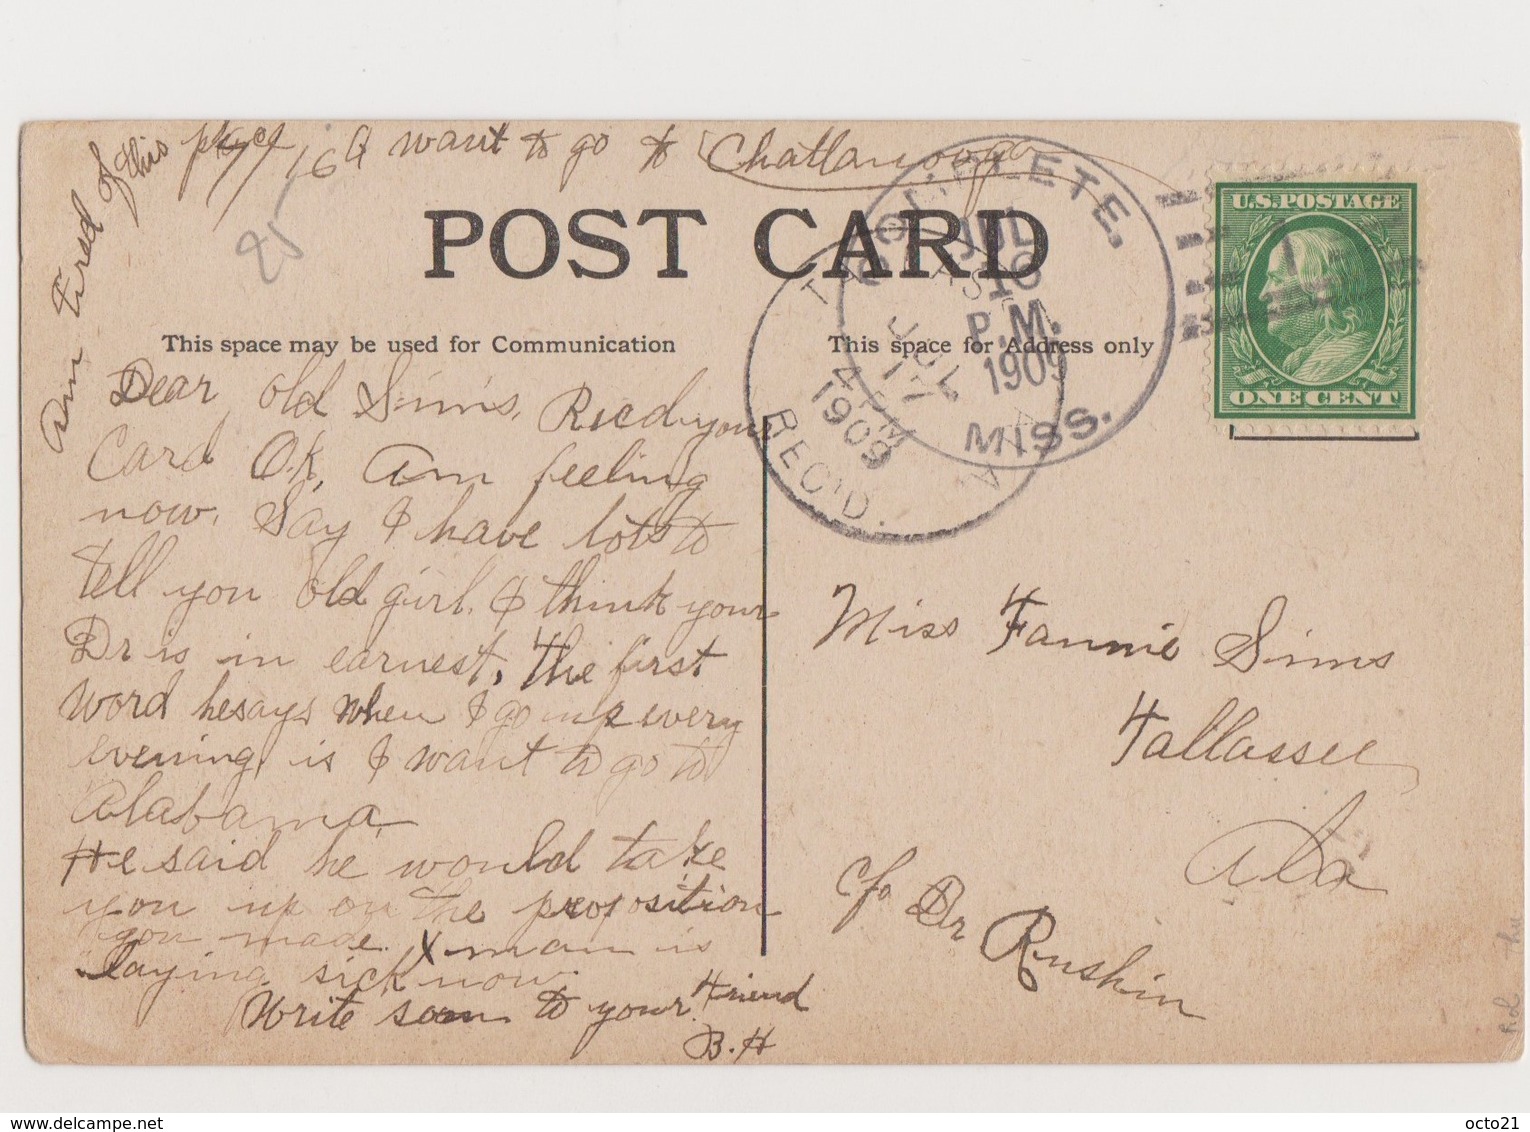 Am tired of this place
7/16 I want to go to Chattanooga
POST CARD
25
This space may be used for Communication
This space for Address only
Dear old Sims, Recd your
Card O.K, Am feeling
now. Say I have lots to
tell you old girl. I think your
Dr is in earnest, The first
word hesays when I go up every
evening is I want to go to
Alabama
He said he would take
you up on the proposition
you made. X man is
laying sick now.
Write soon to your Friend
B.H
COMPLETE.
JUL
16
P.M.
1909
MISS.
JUL
17
4 PM
1909
REC'D.
ALA
U.S. POSTAGE
ONE CENT
Miss Fannie Sims
Tallassee
Ala
c/o Dr Rushin
delcampe.net
octo21